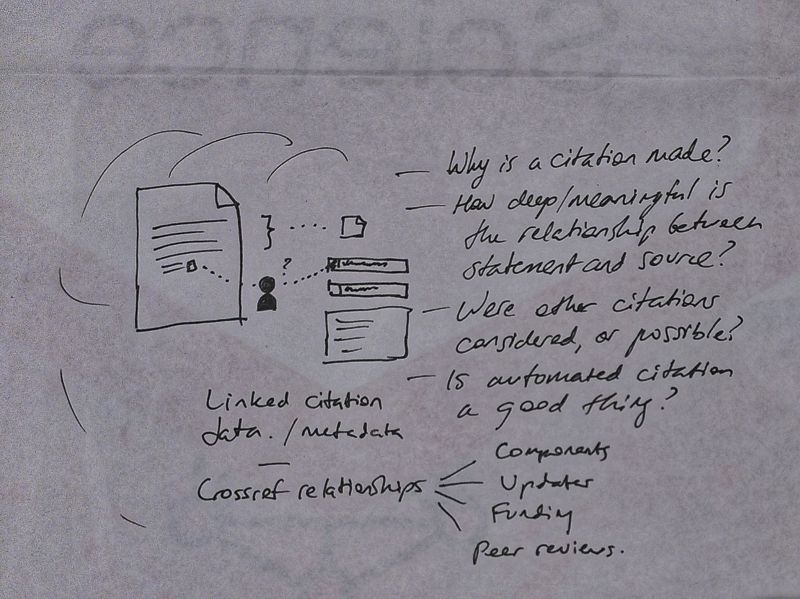 Science
— Why is a citation made?
— How deep/meaningful is
the relationship between
statement and source?
— Were other citations
considered, or possible?
— Is automated citation
a good thing?
}
?
Linked citation
data. / metadata
—
Crossref relationships
Components
Updates
Funding
Peer reviews.